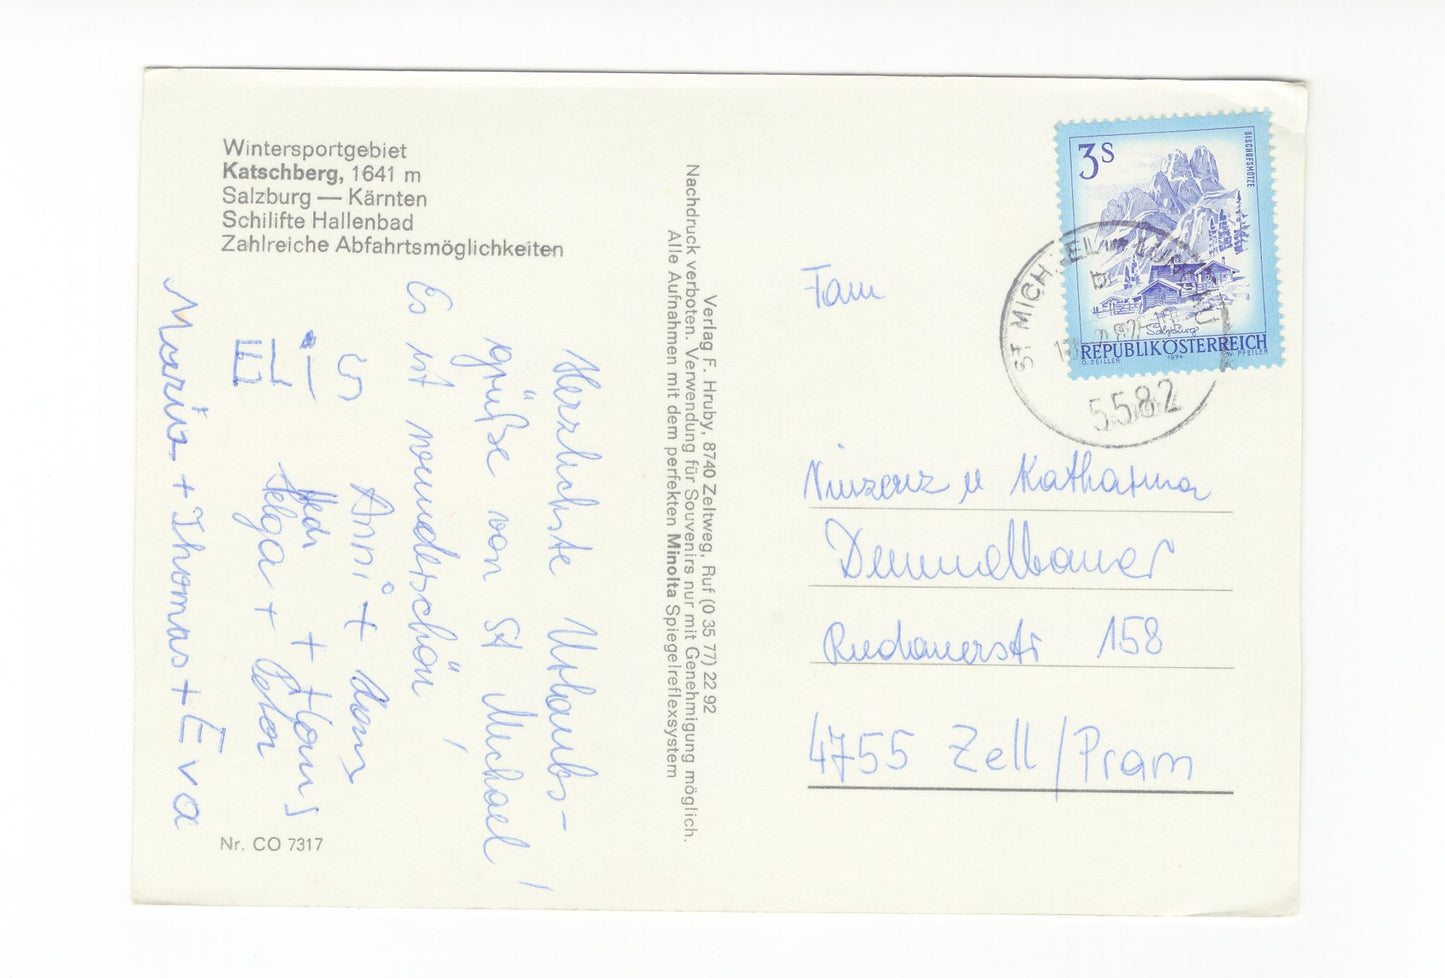 Wintersportgebiet
Katschberg, 1641 m
Salzburg — Kärnten
Schilifte Hallenbad
Zahlreiche Abfahrtsmöglichkeiten
Herzlichste Urlaubs-
grüße von St Michael !
Es ist wunderschön !
Anni + Hans
Hedi + Hans
Helga + Peter
Maria + Thomas + Eva
Nr. CO 7317
Verlag F. Hruby, 8740 Zeltweg, Ruf (0 35 77) 22 92
Nachdruck verboten. Verwendung für Souvenirs nur mit Genehmigung möglich.
Alle Aufnahmen mit dem perfekten Minolta Spiegelreflexsystem
3S
BISCHOFSMÜTZE
Salzburg
REPUBLIK ÖSTERREICH
O. ZEILLER 1974 W. PFEILER
ST. MICHAEL IM LUNGAU
5582
Fam
Vinzenz u Katharina
Demmelbauer
Riedauerstr 158
4755 Zell/Pram